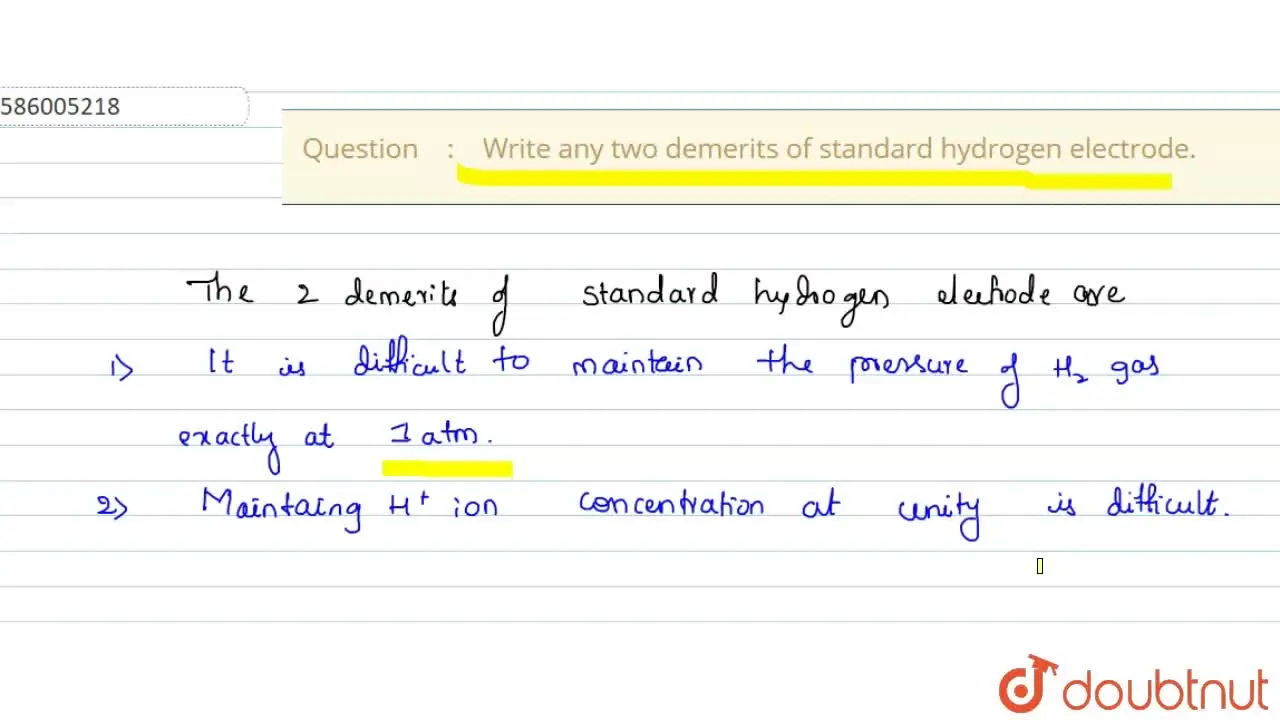 586005218
Question : Write any two demerits of standard hydrogen electrode.
The 2 demerits of standard hydrogen electrode are
1) It is difficult to maintain the pressure of H₂ gas
exactly at 1 atm.
2) Maintaing H⁺ ion concentration at unity is difficult.
doubtnut